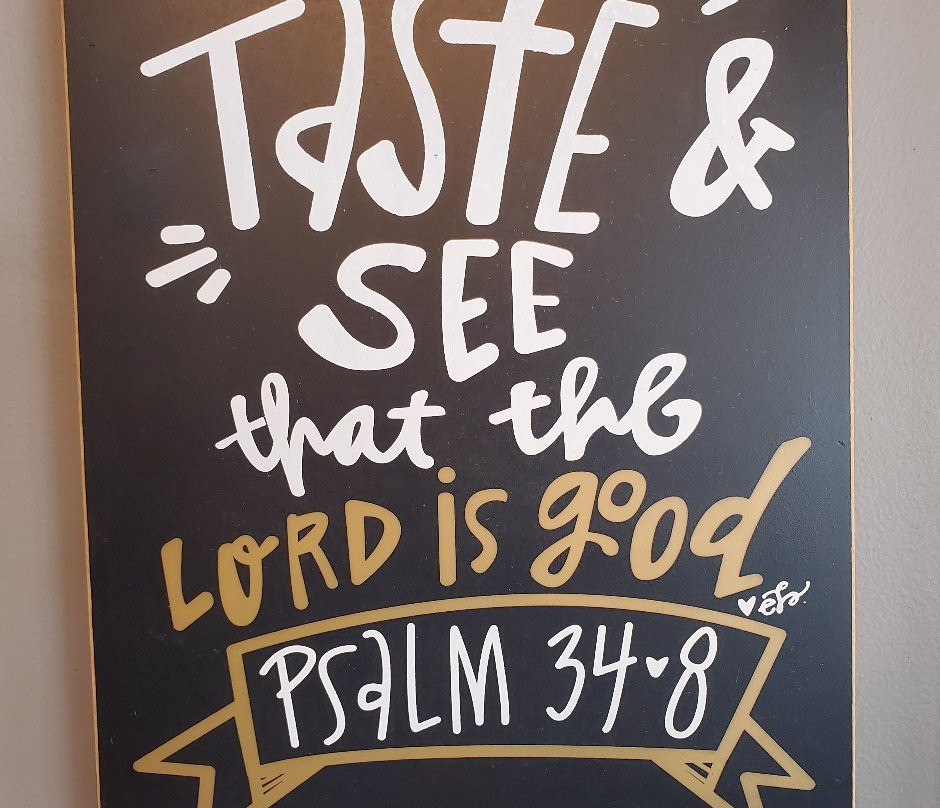 TaSTE &
SEE
that the
LORD iS good
PSaLM 34♥8